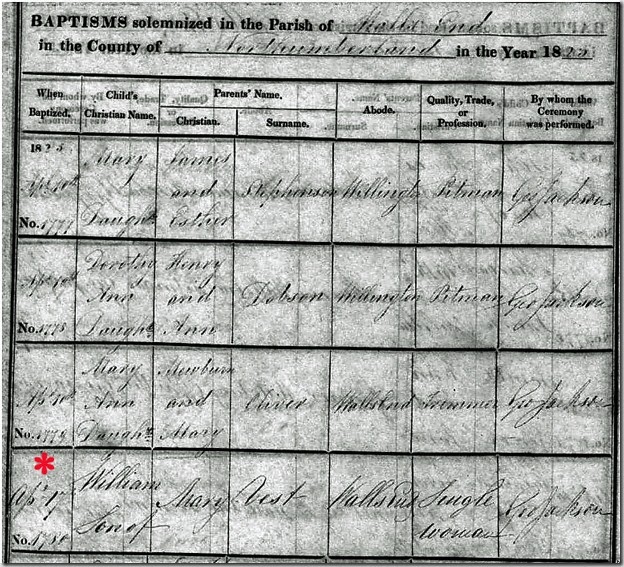 BAPTISMS solemnized in the Parish of Walls End
in the County of Northumberland in the Year 1825
When Baptized. Child's Christian Name. Parents' Name. Christian. Surname. Abode. Quality, Trade, or Profession. By whom the Ceremony was performed.
1825
Mary James
Apl 10th and Stephenson Willington Pitman Geo Jackson
No. 1777 Daughtr Esther
Dorothy Henry
Apl 10th Ann and Dobson Willington Pitman Geo Jackson
No. 1778 Daughtr Ann
Mary Newburn
Apl 10th Ann and Oliver Walls End Trimmer Geo Jackson
No. 1779 Daughtr Mary
*
Apl 17 William Mary Vest Walls End Single Geo Jackson
No. 1780 Son of woman